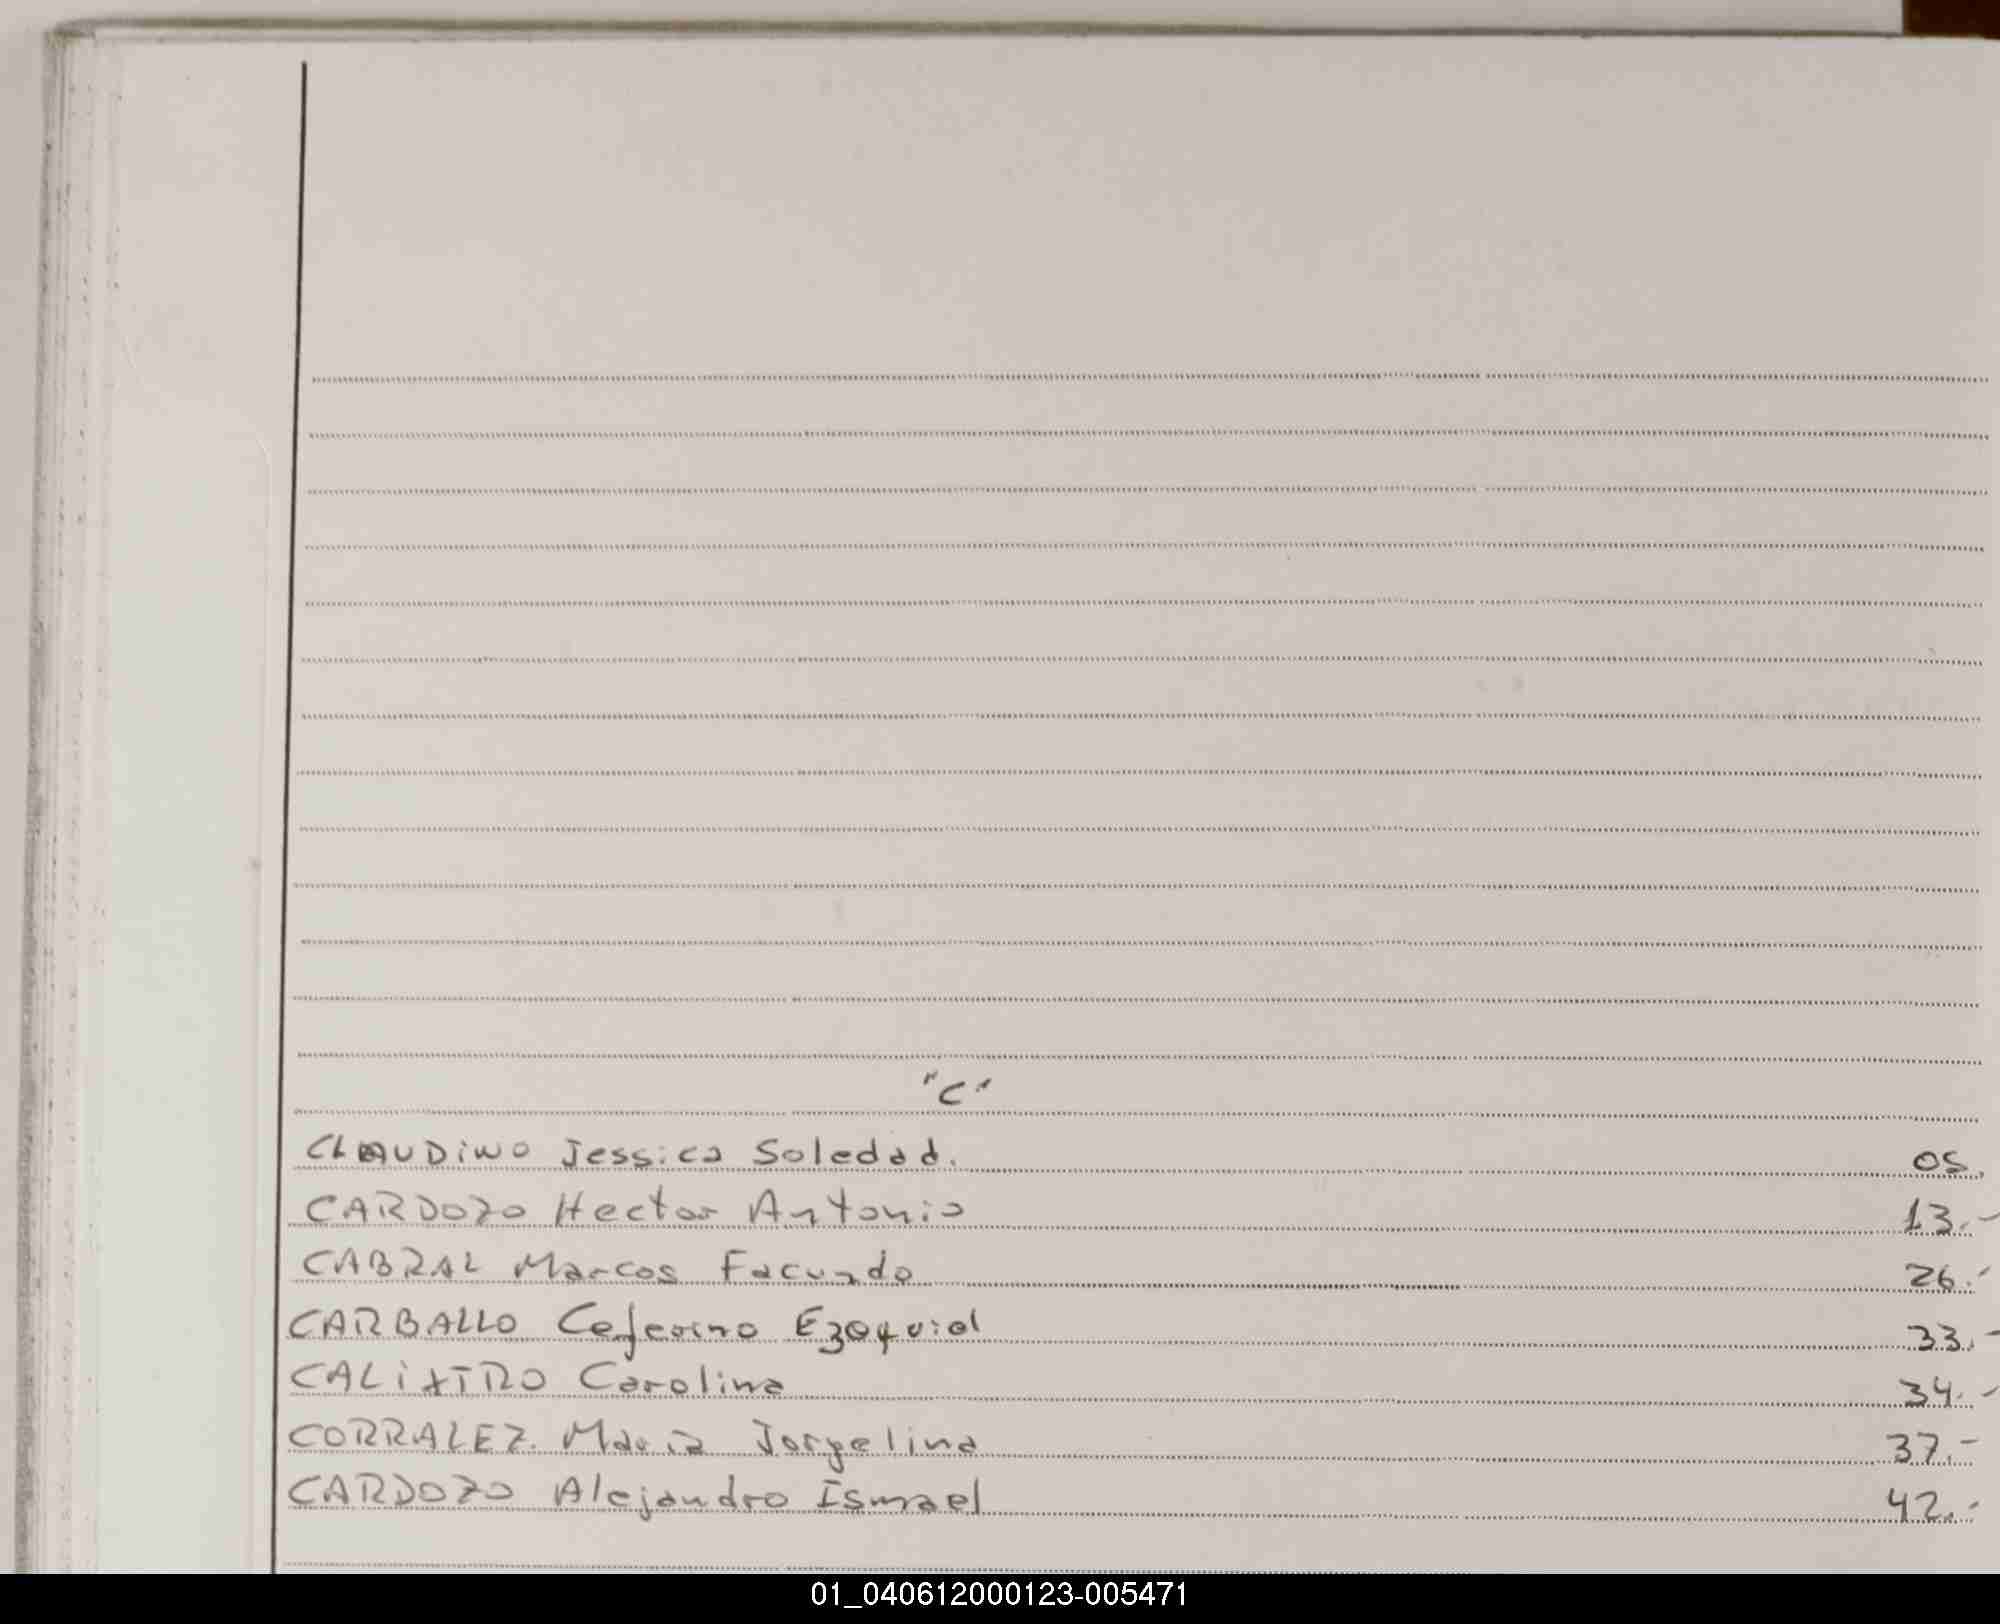 "C"
CLAUDINO Jessica Soledad. 05.
CARDOZO Hector Antonio 13.-
CABRAL Marcos Facundo 26.-
CARBALLO Ceferino Ezequiel 33.-
CALIXTRO Carolina 34.-
CORRALEZ. Maria Jorgelina 37.-
CARDOZO Alejandro Ismael 42.-
01_040612000123-005471